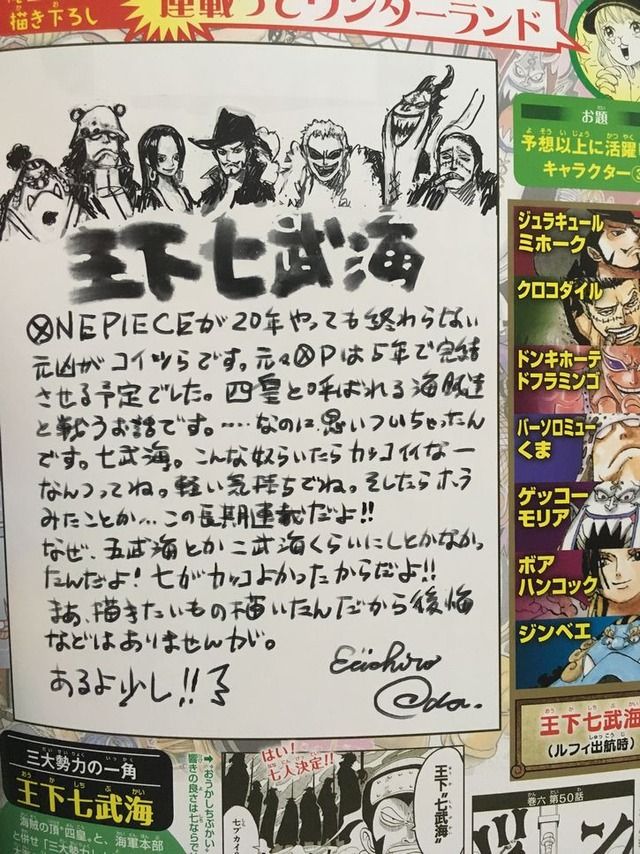 描き下ろし
連載ってワンダーランド
王下七武海
ⓍNEPIECEが20年やっても終わらない
元凶がコイツらです。元々ⓍPは5年で完結
させる予定でした。四皇と呼ばれる海賊達
と戦うお話です。……なのに思いついちゃったん
です。七武海。こんな奴らいたらカッコイイなー
なんつってね。軽い気持ちでね。そしたらホラ
みたことか…この長期連載だよ!!
なぜ、五武海とか二武海くらいにしとかなかっ
たんだよ!七がカッコよかったからだよ!!
まあ、描きたいもの描いたんだから後悔
などはありませんが。
あるよ少し!!
Eiichiro
Oda.
お題
予想以上に活躍
キャラクター
ジュラキュール
ミホーク
クロコダイル
ドンキホーテ
ドフラミンゴ
バーソロミュー
くま
ゲッコー
モリア
ボア
ハンコック
ジンベエ
王下七武海
(ルフィ出航時)
三大勢力の一角
王下七武海
海賊の頂“四皇”と、海軍本部
と併せ「三大勢力」
おうかしちぶかい
響きの良さは七ならで
はい!
七人決定!!
七ブカイ
王下“七武海”
巻六 第50話